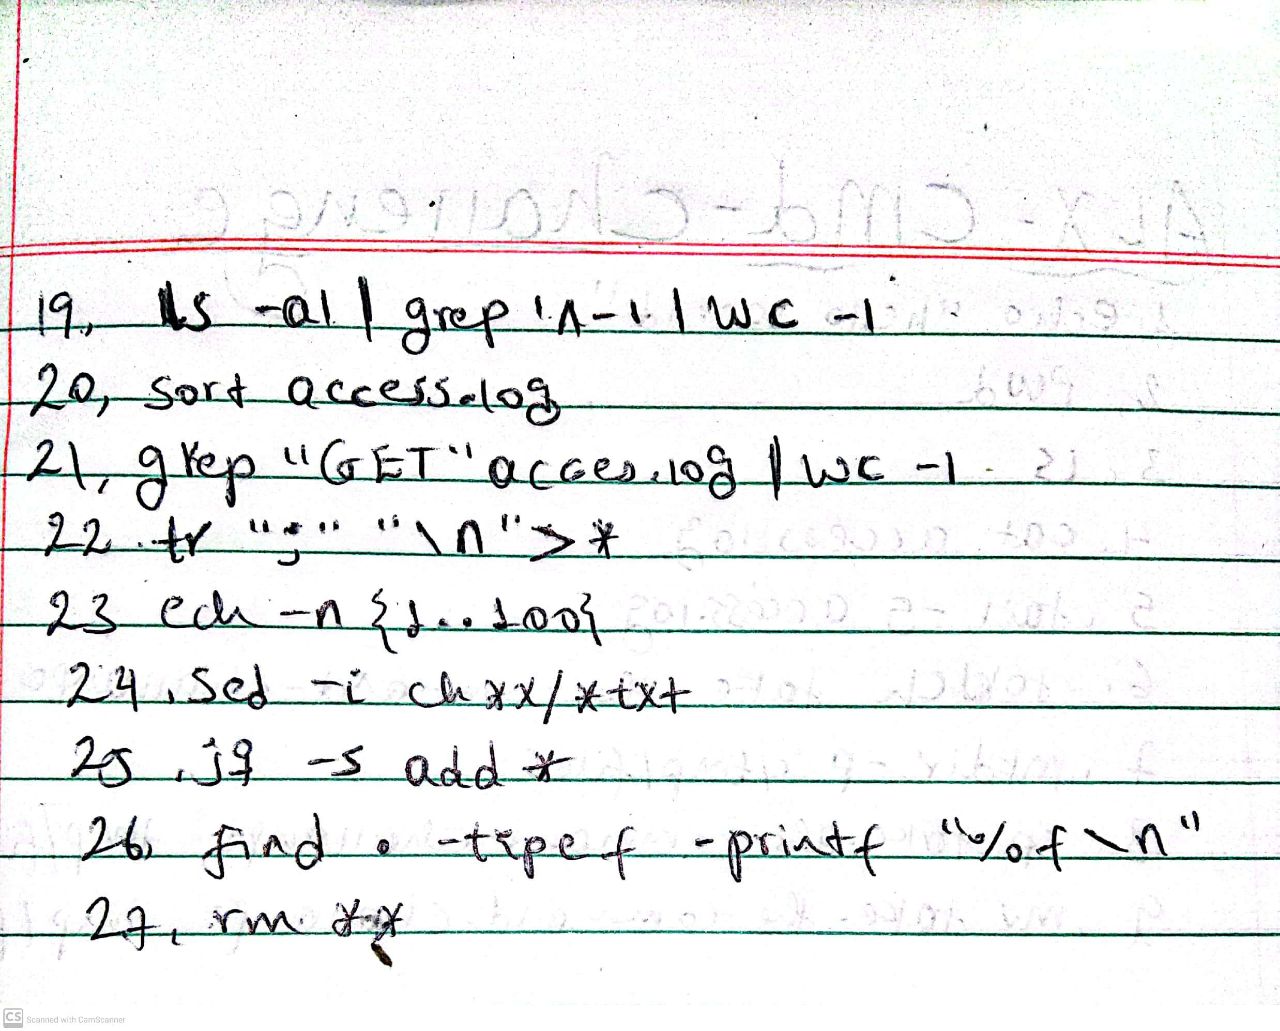 19, ls -al | grep '^-' | wc -l
20, sort access.log
21, grep "GET" acces.log | wc -l
22. tr ";" "\n" > *
23 ech -n {1..100}
24. sed -i ch xx/*txt
25. jq -s add *
26, find . -type f -printf "%f\n"
27, rm **
CS Scanned with CamScanner